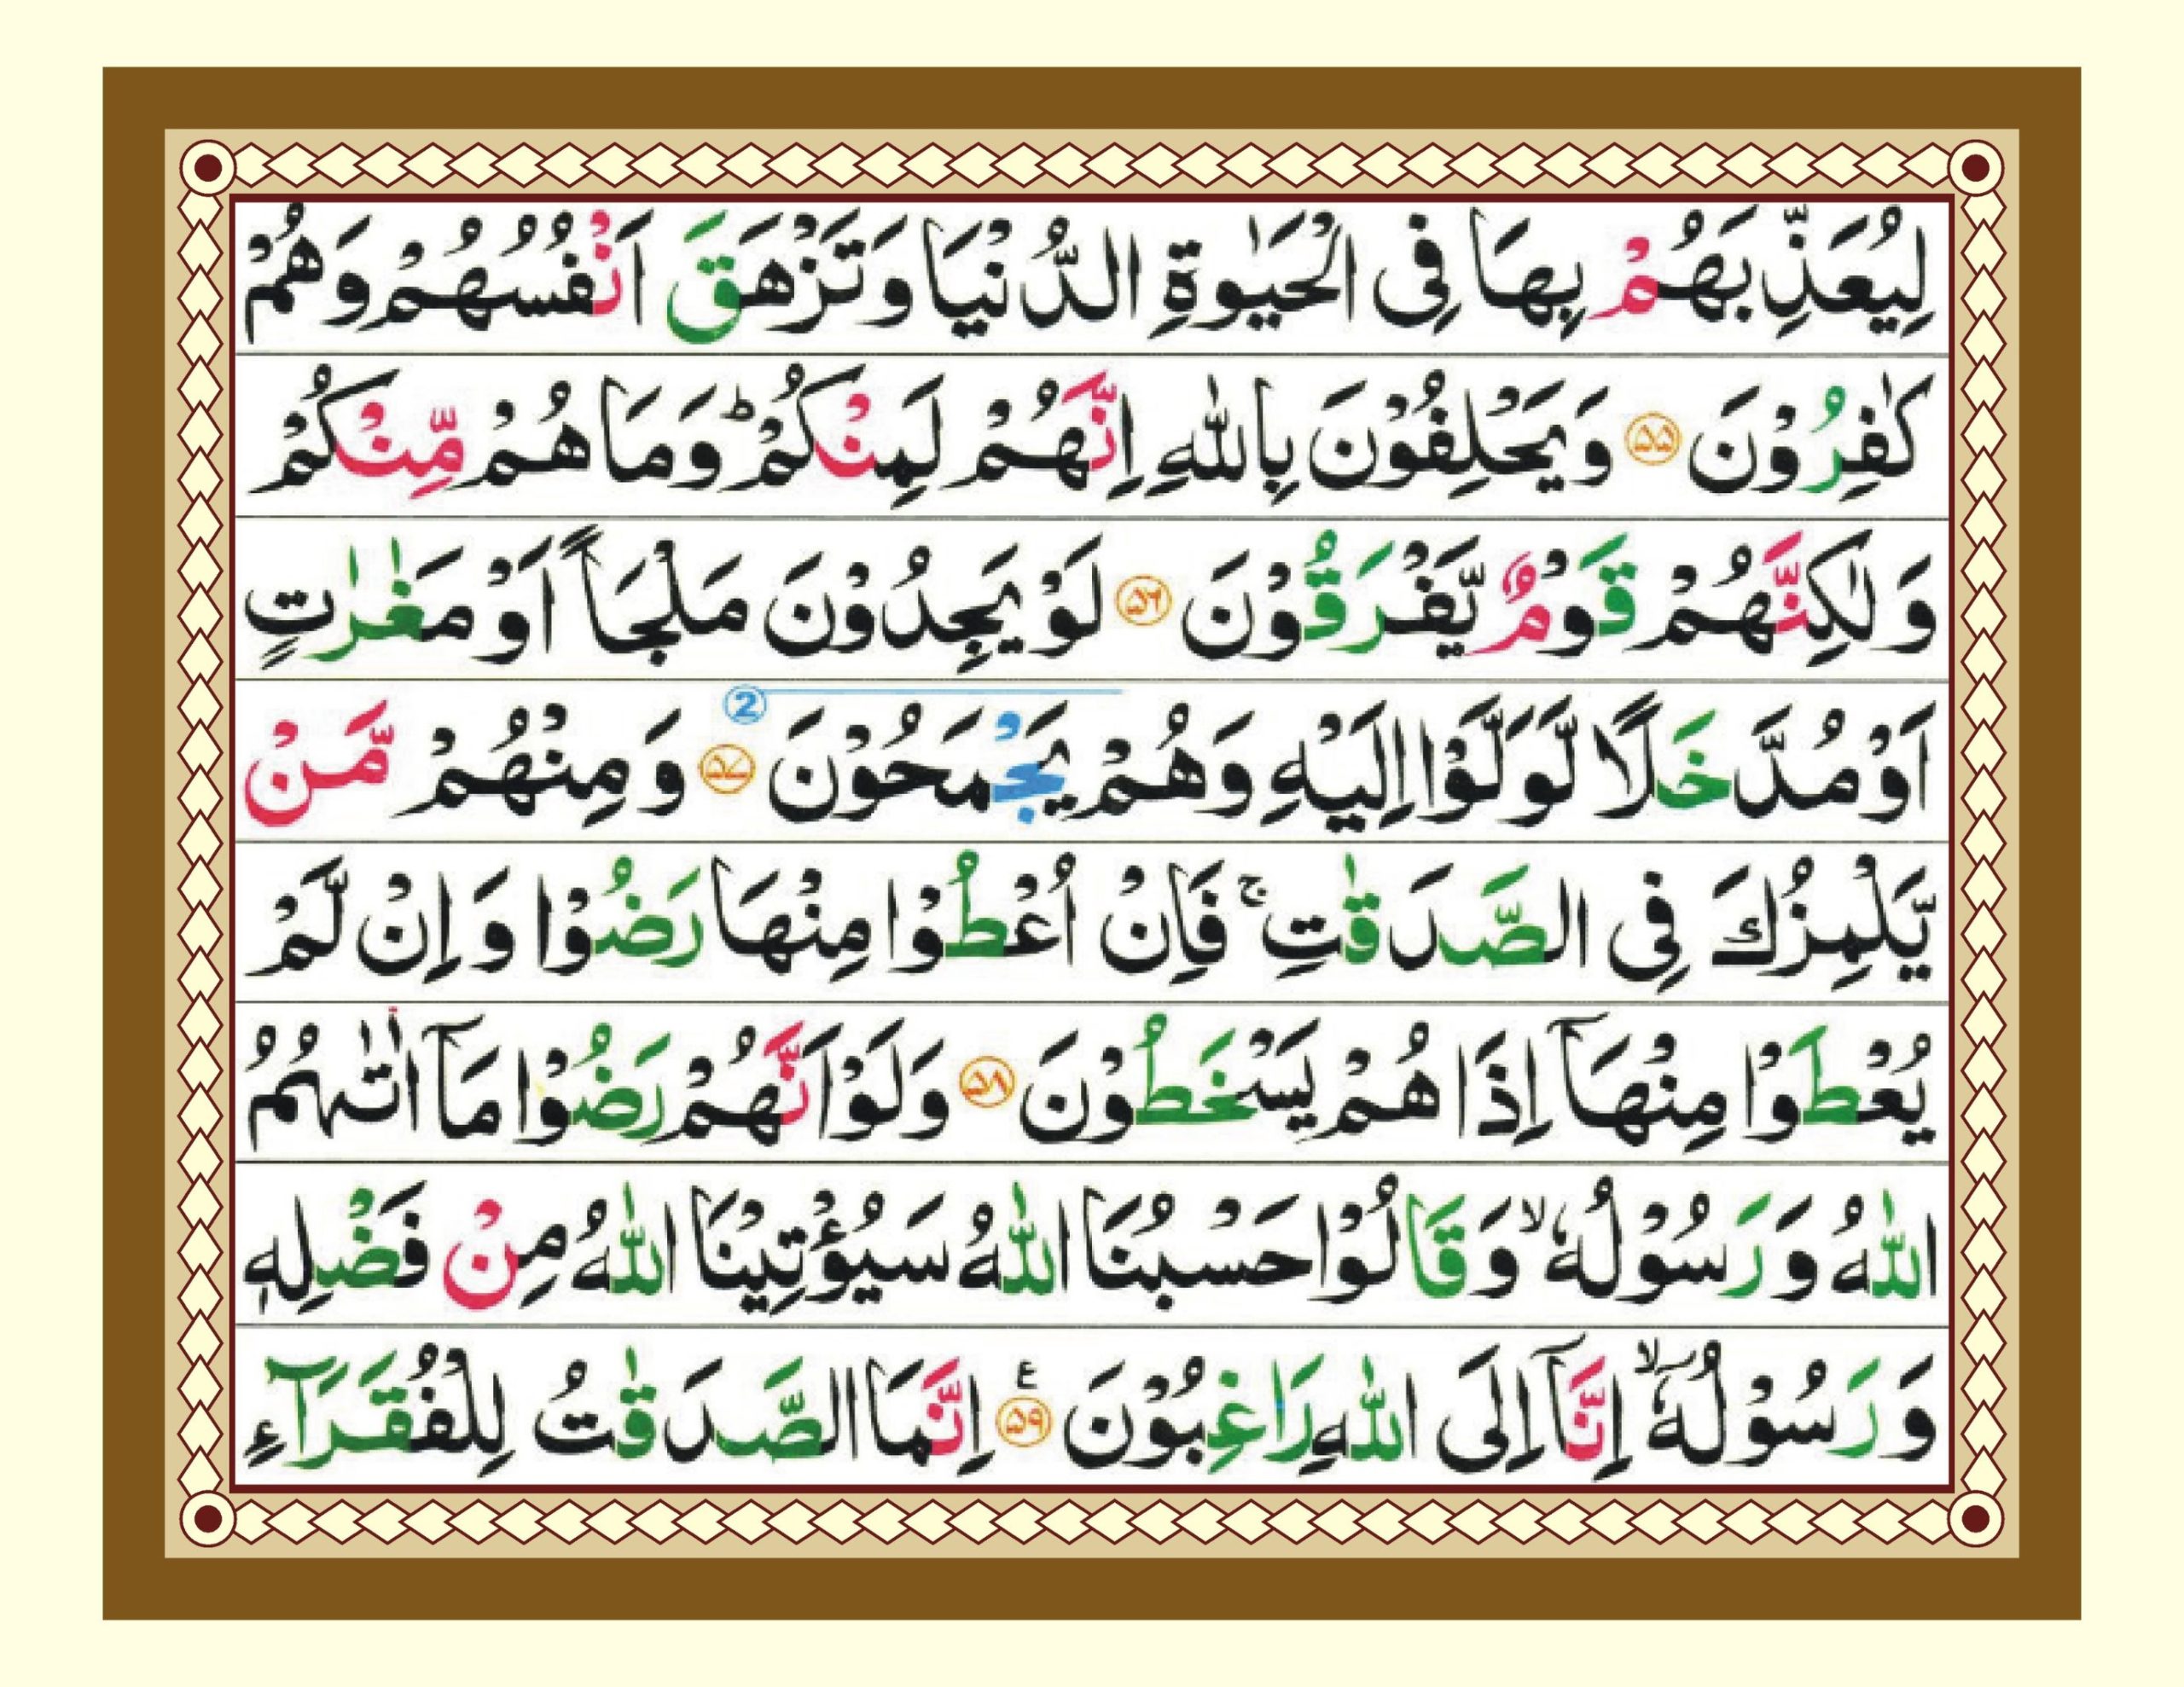 لِيُعَذِّبَهُمْ بِهَا فِى الْحَيٰوةِ الدُّنْيَا وَتَزْهَقَ اَنْفُسُهُمْ وَهُمْ
كٰفِرُوْنَ ۵۵ وَيَحْلِفُوْنَ بِاللّٰهِ اِنَّهُمْ لَمِنْكُمْ ؕ وَمَا هُمْ مِّنْكُمْ
وَلٰكِنَّهُمْ قَوْمٌ يَّفْرَقُوْنَ ۵۶ لَوْ يَجِدُوْنَ مَلْجَاً اَوْ مَغٰرٰتٍ
2
اَوْ مُدَّخَلًا لَّوَلَّوْا اِلَيْهِ وَهُمْ يَجْمَحُوْنَ ۵۷ وَمِنْهُمْ مَّنْ
يَّلْمِزُكَ فِى الصَّدَقٰتِ ۚ فَاِنْ اُعْطُوْا مِنْهَا رَضُوْا وَاِنْ لَّمْ
يُعْطَوْا مِنْهَآ اِذَا هُمْ يَسْخَطُوْنَ ۵۸ وَلَوْ اَنَّهُمْ رَضُوْا مَآ اٰتٰىهُمُ
اللّٰهُ وَرَسُوْلُهٗ ۙ وَقَالُوْا حَسْبُنَا اللّٰهُ سَيُؤْتِيْنَا اللّٰهُ مِنْ فَضْلِهٖ
وَرَسُوْلُهٗۤ ۙ اِنَّآ اِلَى اللّٰهِ رَاغِبُوْنَ ۵۹ ع اِنَّمَا الصَّدَقٰتُ لِلْفُقَرَآءِ